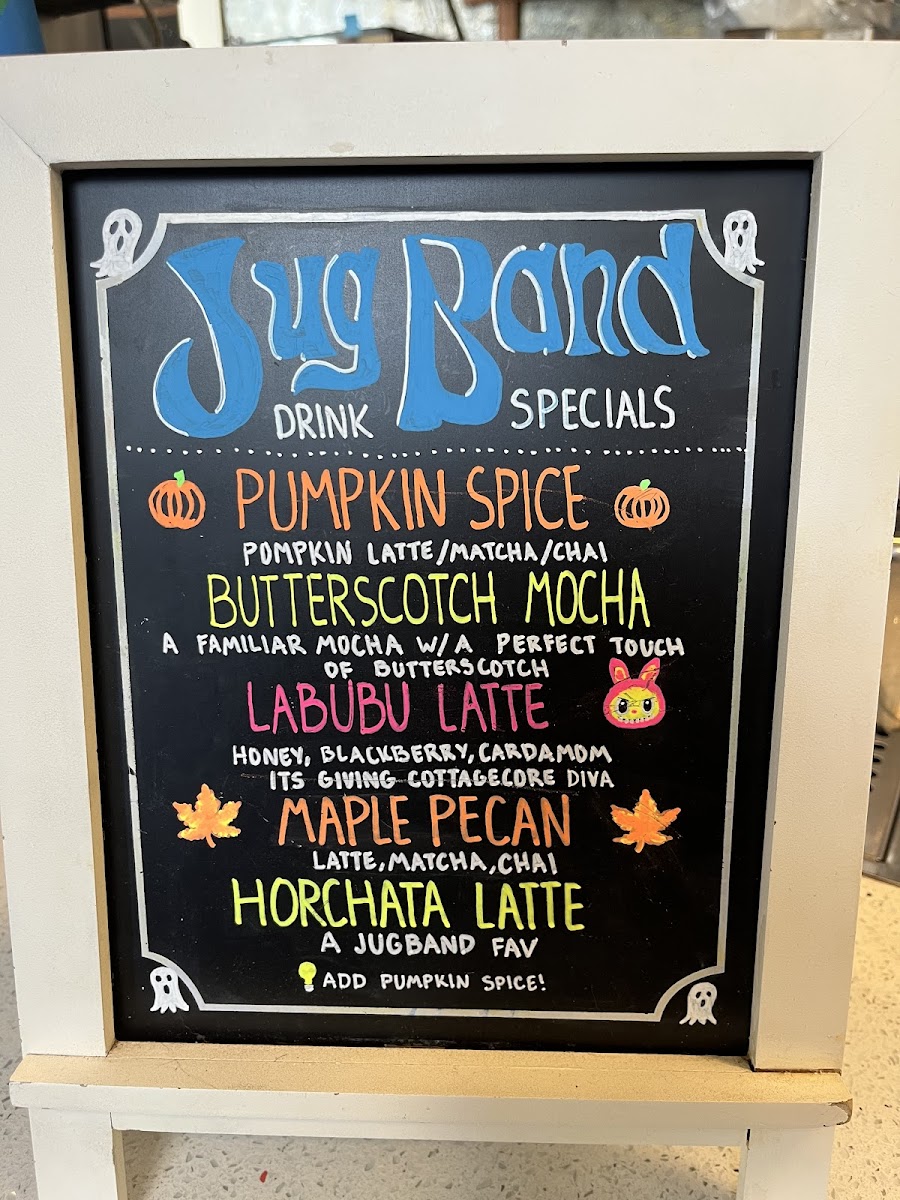 Jug Band
DRINK SPECIALS
PUMPKIN SPICE
POMPKIN LATTE/MATCHA/CHAI
BUTTERSCOTCH MOCHA
A FAMILIAR MOCHA W/A PERFECT TOUCH
OF BUTTERSCOTCH
LABUBU LATTE
HONEY, BLACKBERRY, CARDAMOM
ITS GIVING COTTAGECORE DIVA
MAPLE PECAN
LATTE, MATCHA, CHAI
HORCHATA LATTE
A JUGBAND FAV
ADD PUMPKIN SPICE!